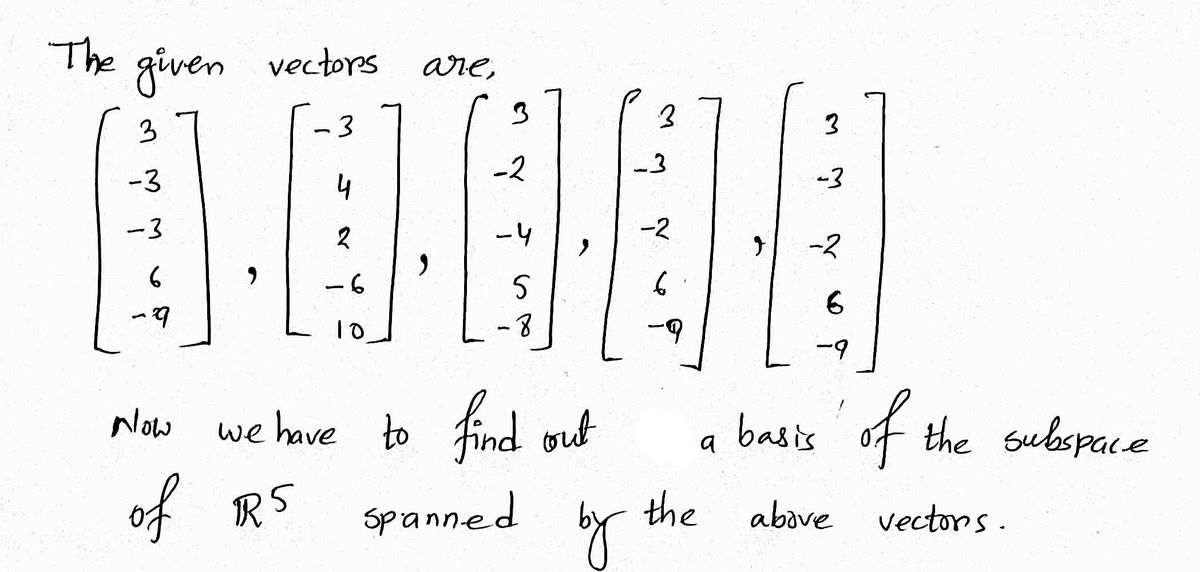 The given vectors are,
[3 -3 -3 6 -9], [-3 4 2 -6 10], [3 -2 -4 5 -8], [3 -3 -2 6 -9], [3 -3 -2 6 -9]
Now we have to find out a basis of the subspace
of ℝ5 spanned by the above vectors.